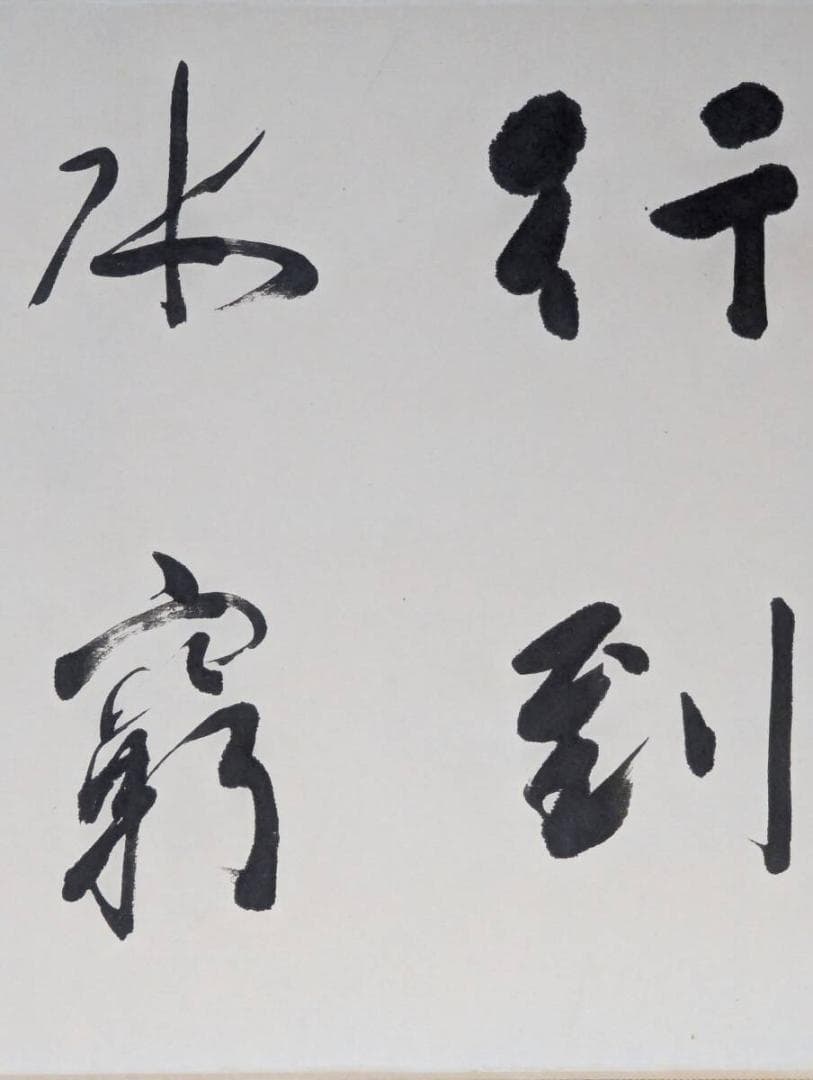 行到
水窮